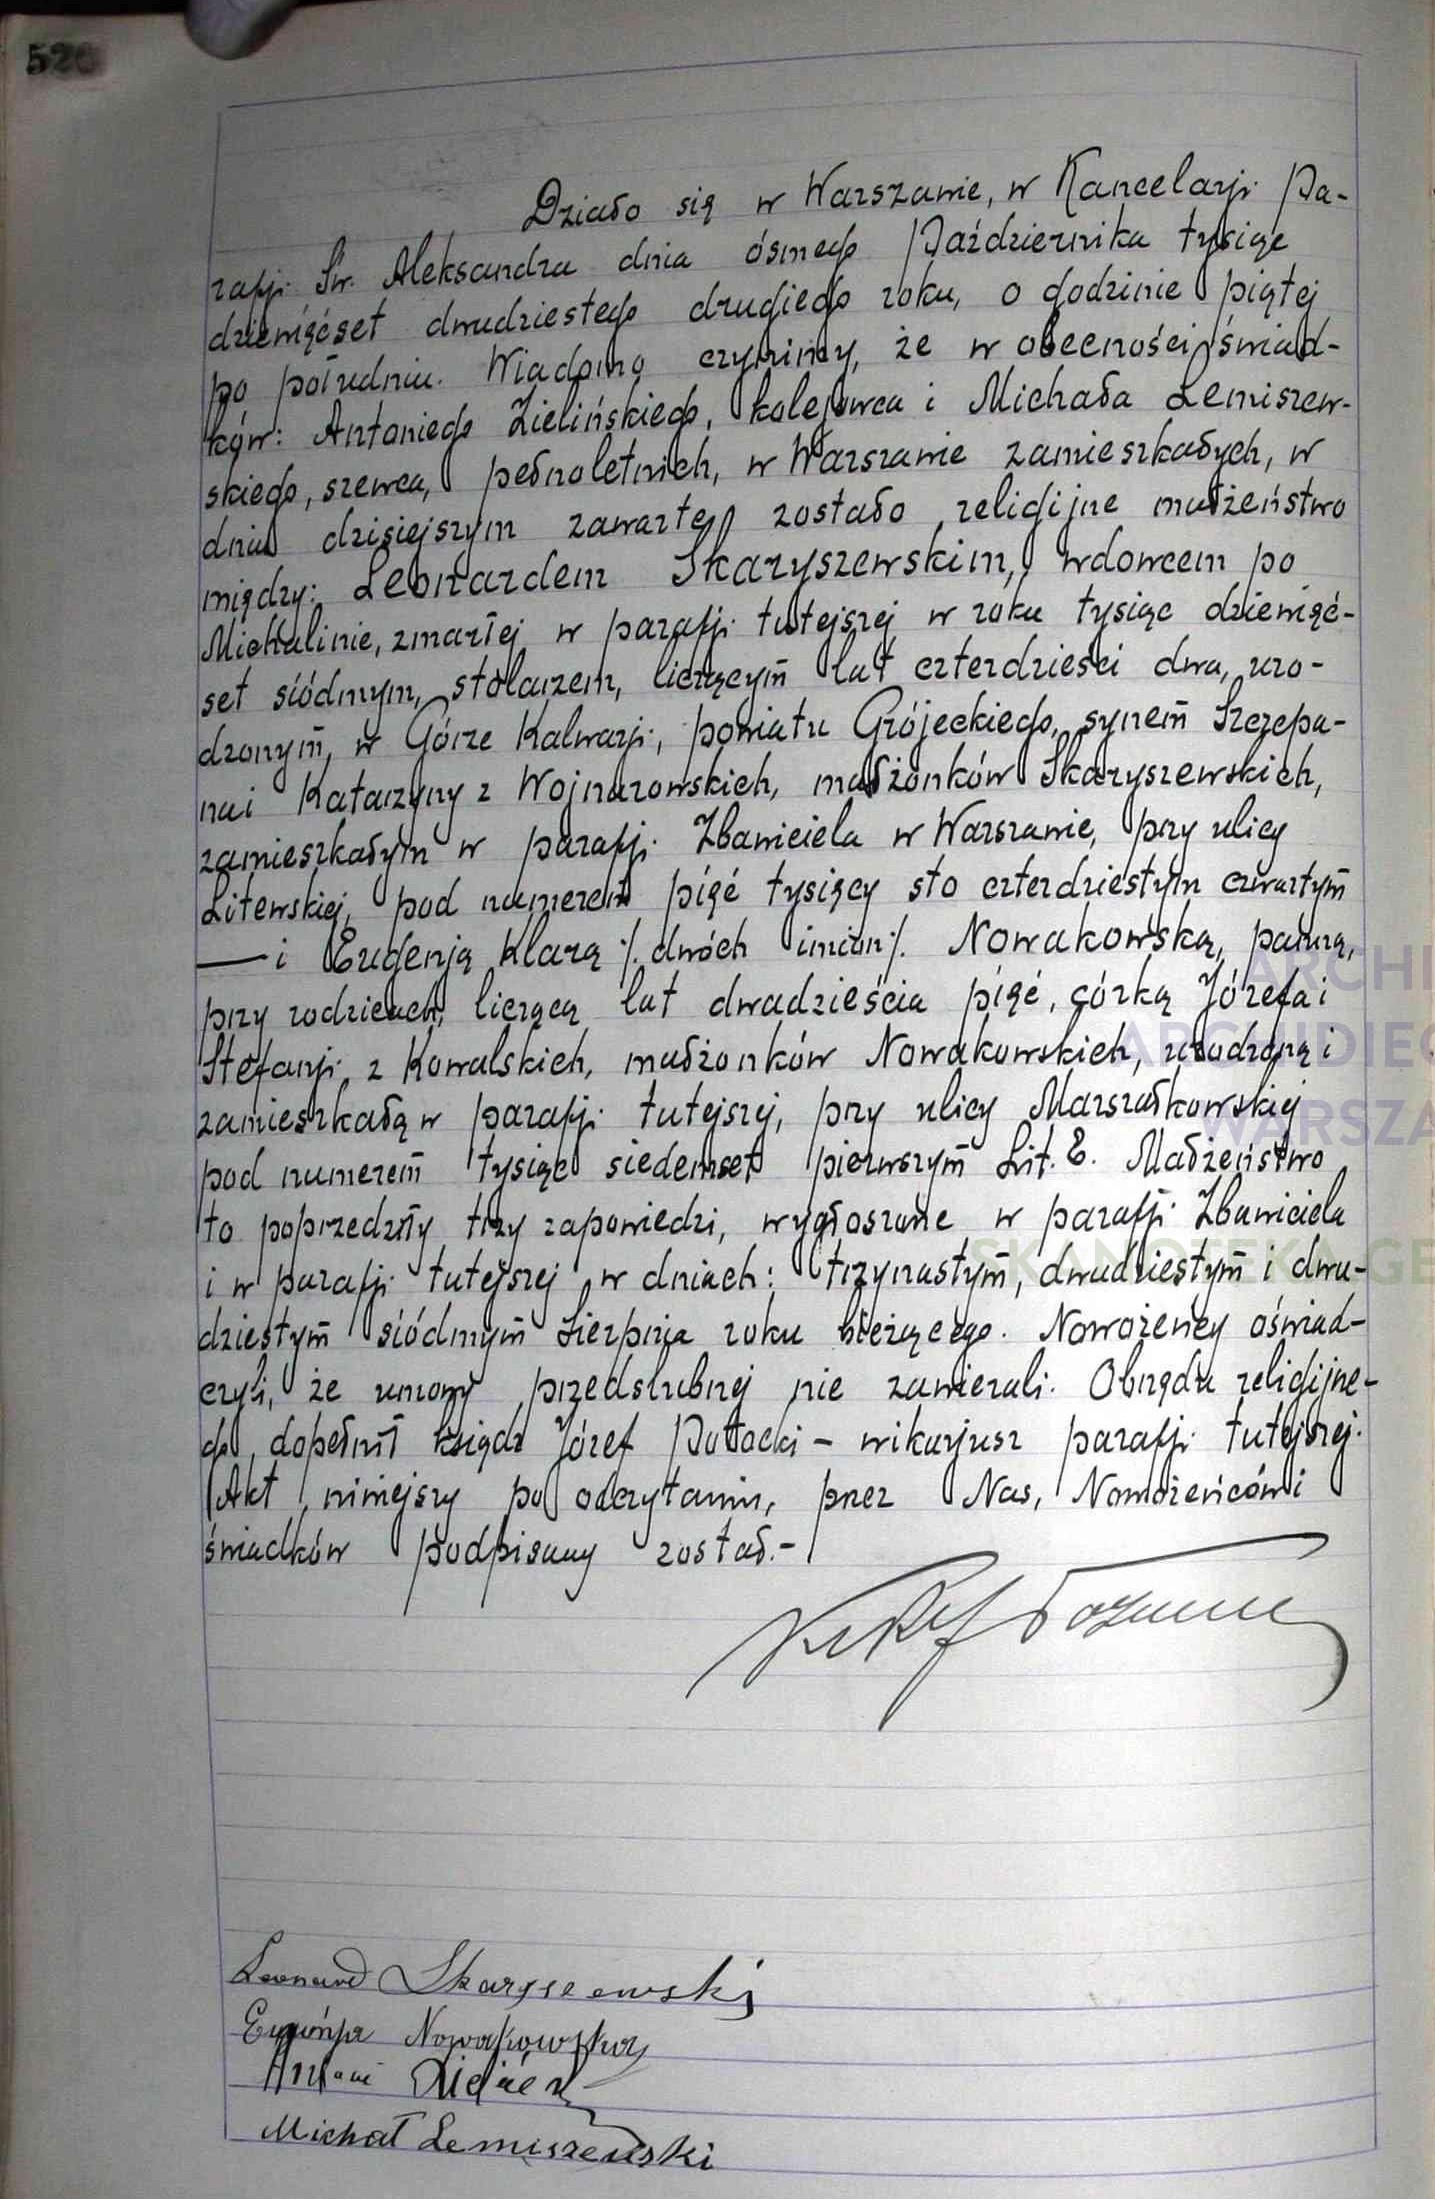 Działo się w Warszawie, w Kancelarji Pa-
rafji Św. Aleksandra dnia ósmego Października tysiąc
dziewięćset dwudziestego drugiego roku, o godzinie piątej
po południu. Wiadomo czynimy, że w obecności świad-
ków: Antoniego Zielińskiego, kolejowca i Michała Lemiszew-
skiego, szewca, pełnoletnich, w Warszawie zamieszkałych, w
dniu dzisiejszym zawarte zostało religijne małżeństwo
między: Leonardem Skaryszewskim, wdowcem po
Michalinie, zmarłej w parafji tutejszej w roku tysiąc dziewięć-
set siódmym, stolarzem, liczącym lat czterdzieści dwa, uro-
dzonym w Górze Kalwarji, powiatu Grójeckiego, synem Szczepa-
na i Katarzyny z Wojnarowskich, małżonków Skaryszewskich,
zamieszkałym w parafji Zbawiciela w Warszawie, przy ulicy
Litewskiej, pod numerem pięć tysięcy sto czterdziestym czwartym
— i Eugenją Klarą /. dwóch imion /. Nowakowską, panną,
przy rodzicach, liczącą lat dwadzieścia pięć, córką Józefa i
Stefanji z Kowalskich, małżonków Nowakowskich, urodzoną i
zamieszkałą w parafji tutejszej, przy ulicy Marszałkowskiej
pod numerem tysiąc siedemset pierwszym Lit. E. Małżeństwo
to poprzedziły trzy zapowiedzi, wygłoszone w parafji Zbawiciela
i w parafji tutejszej w dniach: trzynastym, dwudziestym i dwu-
dziestym siódmym Sierpnia roku bieżącego. Nowożeńcy oświad-
czyli, że umowy przedślubnej nie zawierali. Obrzędu religijne-
go dopełnił ksiądz Józef Potocki – wikarjusz parafji tutejszej.
Akt niniejszy po odczytaniu, przez Nas, Nowożeńców i
świadków podpisany został.–
Leonard Skaryszewski
Eugenja Nowakowska
Antoni
Michał Lemiszewski
ARCHI
ARCHIDIEC
WARSZA
SKANOTEKA.GE